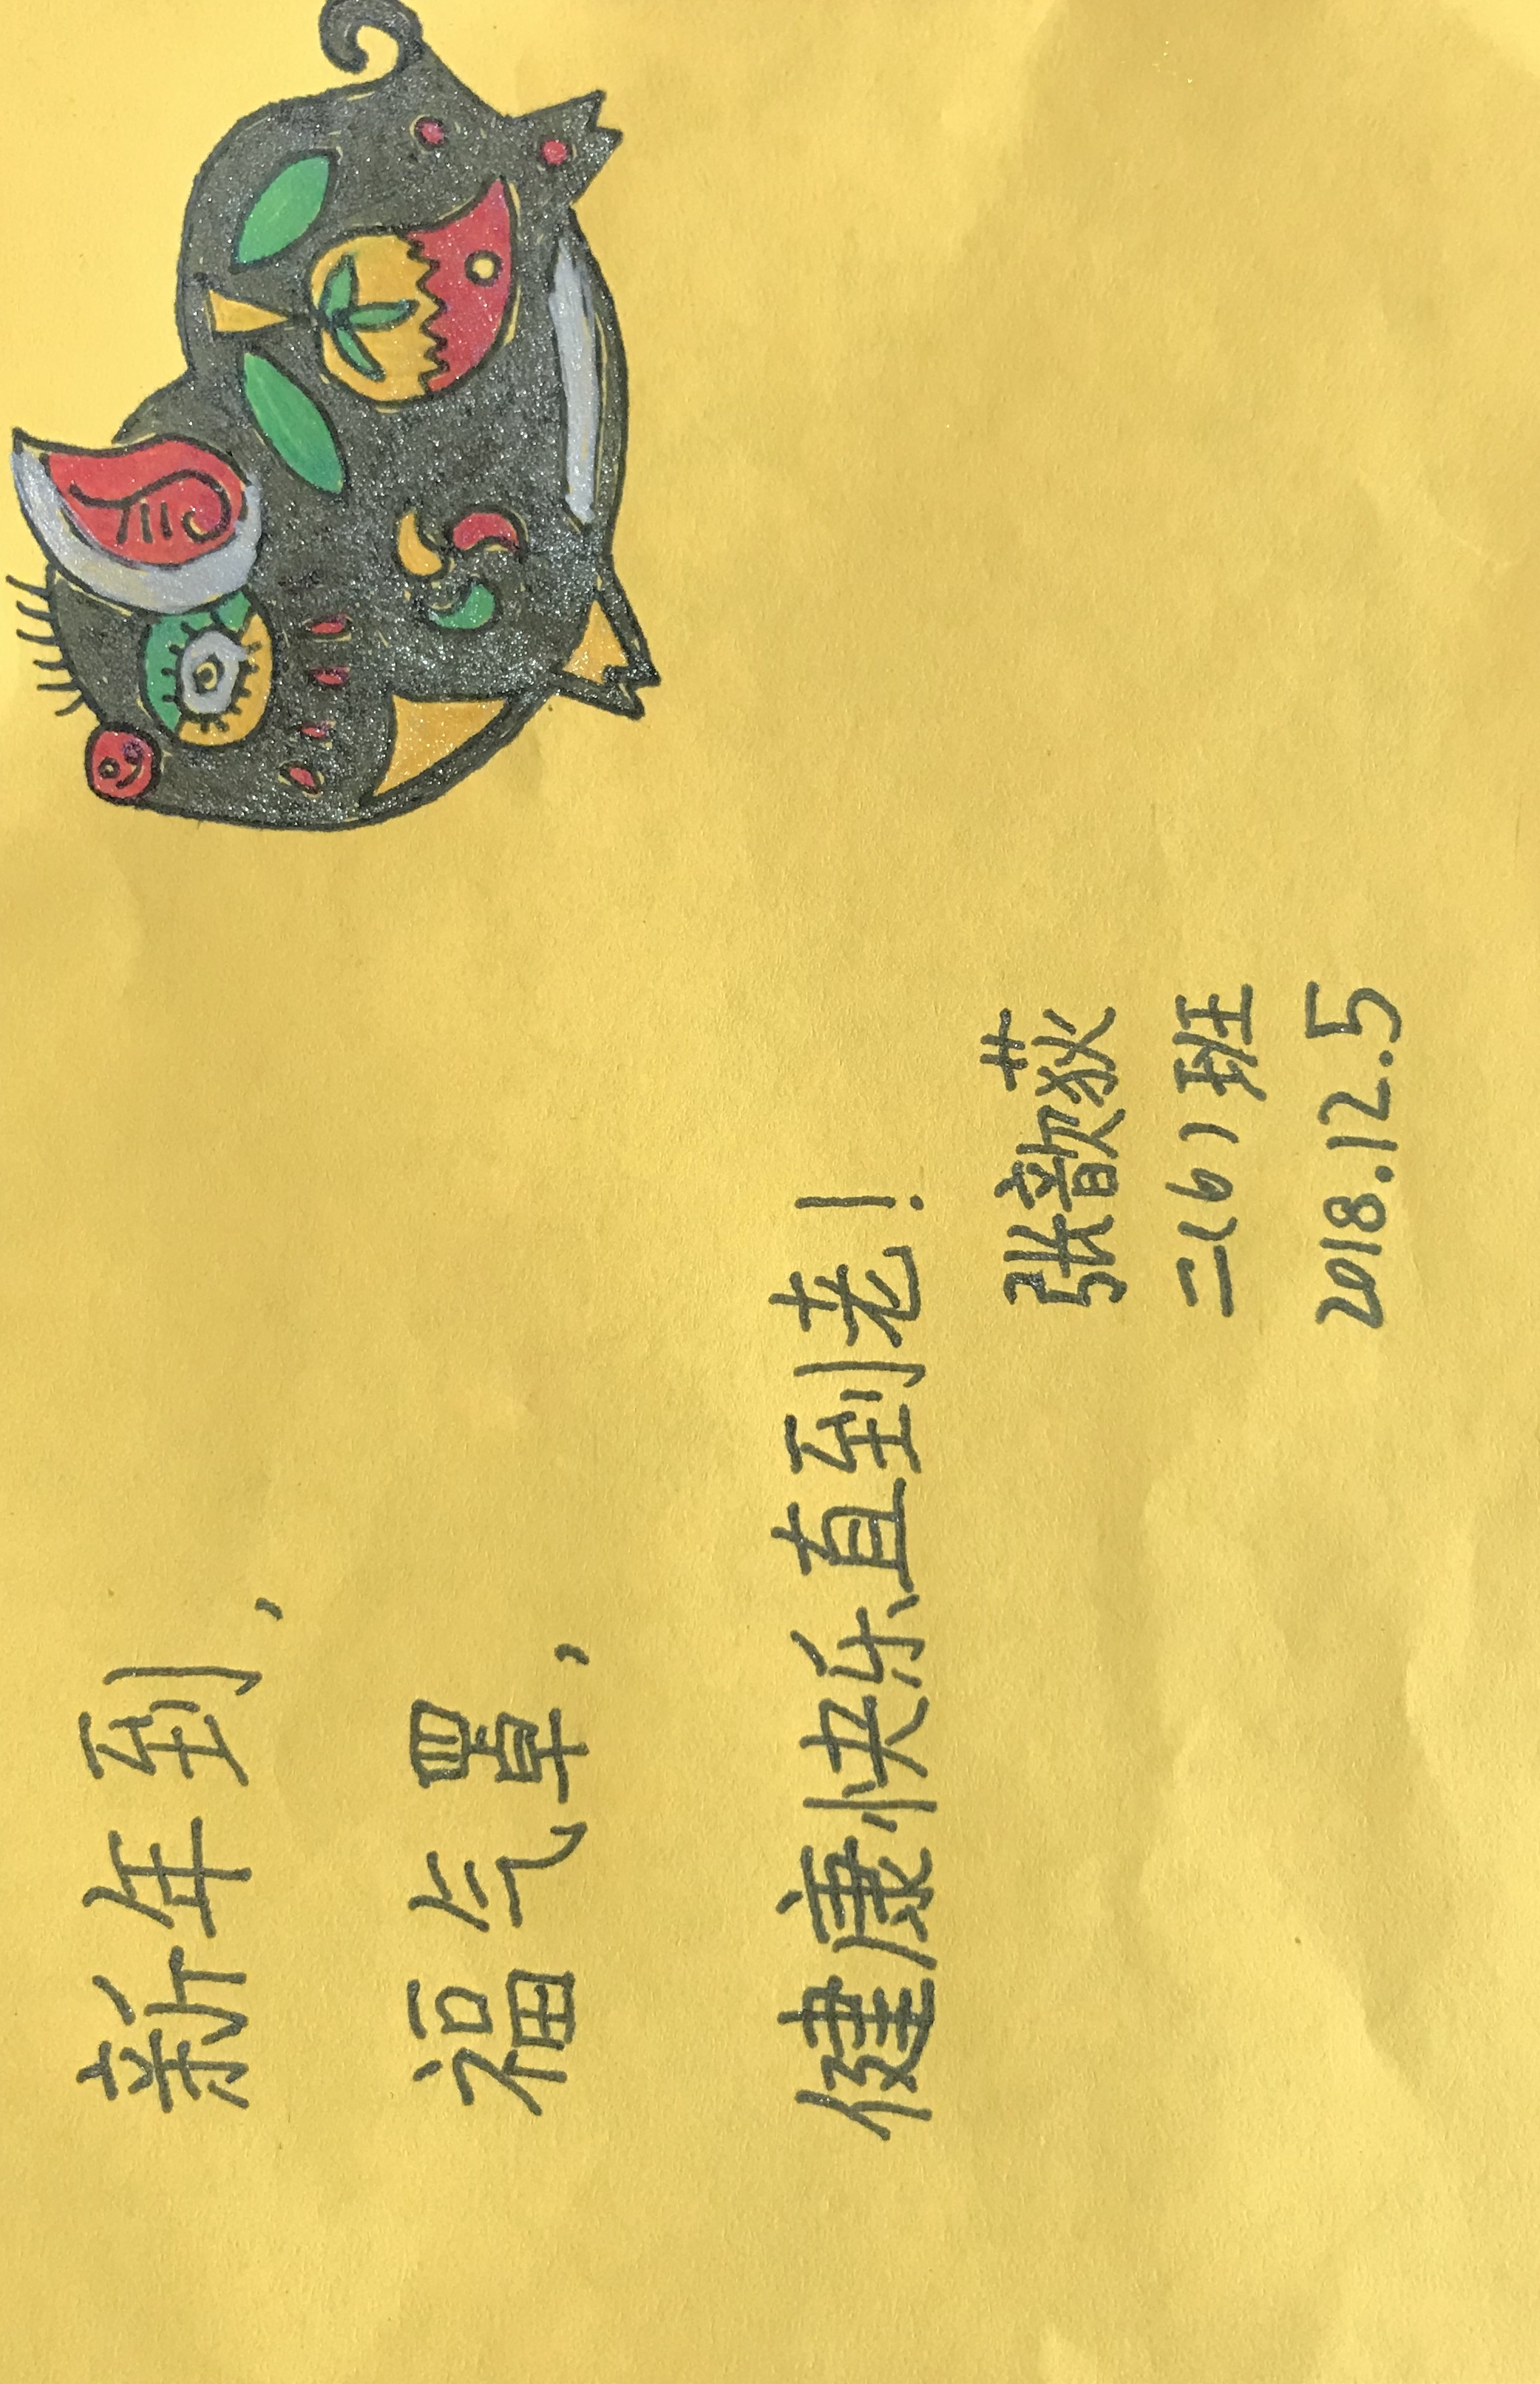 新年到，
福气罩，
健康快乐直到老！
张歆荻
二（6）班
2018.12.5